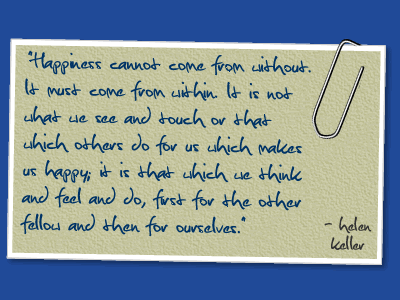 "Happiness cannot come from without.
It must come from within. It is not
what we see and touch or that
which others do for us which makes
us happy; it is that which we think
and feel and do, first for the other
fellow and then for ourselves."
- helen
keller